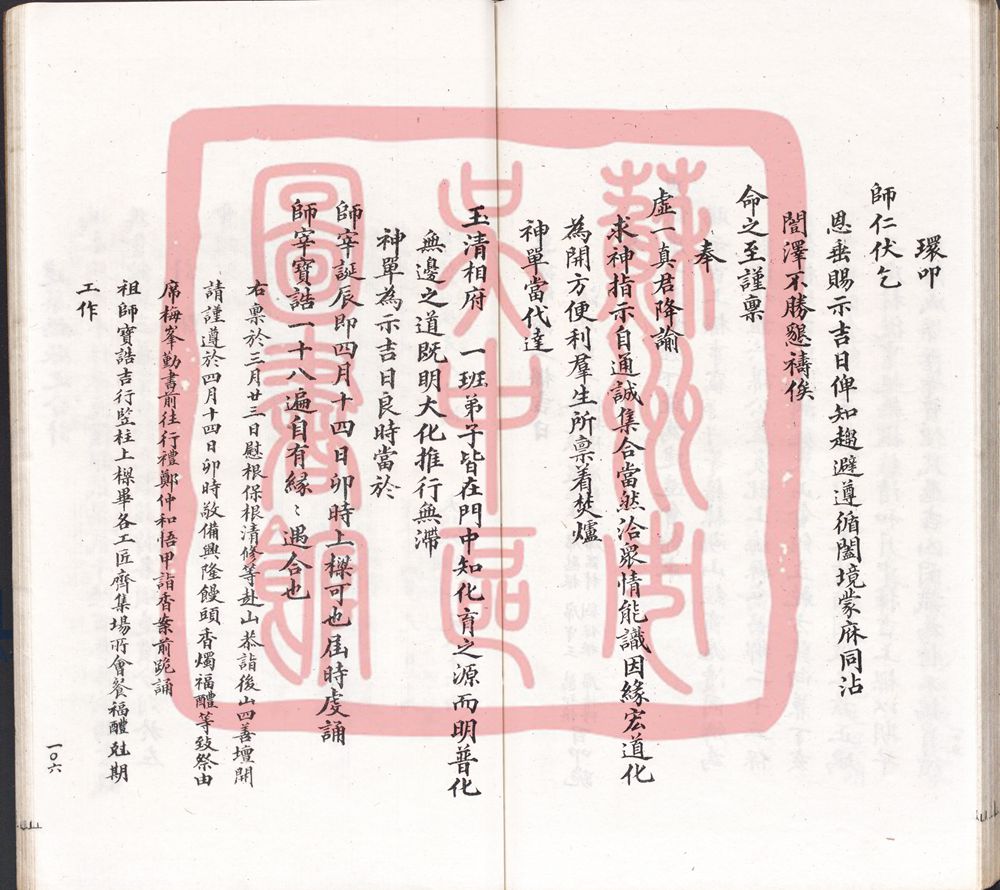 環叩
師仁伏乞
恩垂賜示吉日俾知趨避遵循闔境蒙庥同沾
闓澤不勝懇禱俟
命之至謹禀
奉
虛一真君降諭
求神指示自通誠集合當然洽眾情能識因緣宏道化
為開方便利羣生所禀着焚爐
神單當代達
玉清相府　一班弟子皆在門中知化育之源而明普化
無邊之道既明大化推行無滯
神單為示吉日良時當於
師宰誕辰即四月十四日卯時上樑可也屆時虔誦
師宰寶誥一十八遍自有緣〻遇合也
右禀於三月廿三日慰根保根清修等赴山恭詣後山四善壇開
請謹遵於四月十四日卯時敬備興隆饅頭香燭福醴等致祭由
席梅峯勤書前往行禮鄭仲和悟甲詣香案前跪誦
祖師寶誥吉行監柱上樑畢各工匠齊集場所會餐福醴尅期
工作
一〇六
蘇州市
吳中區
圖書館